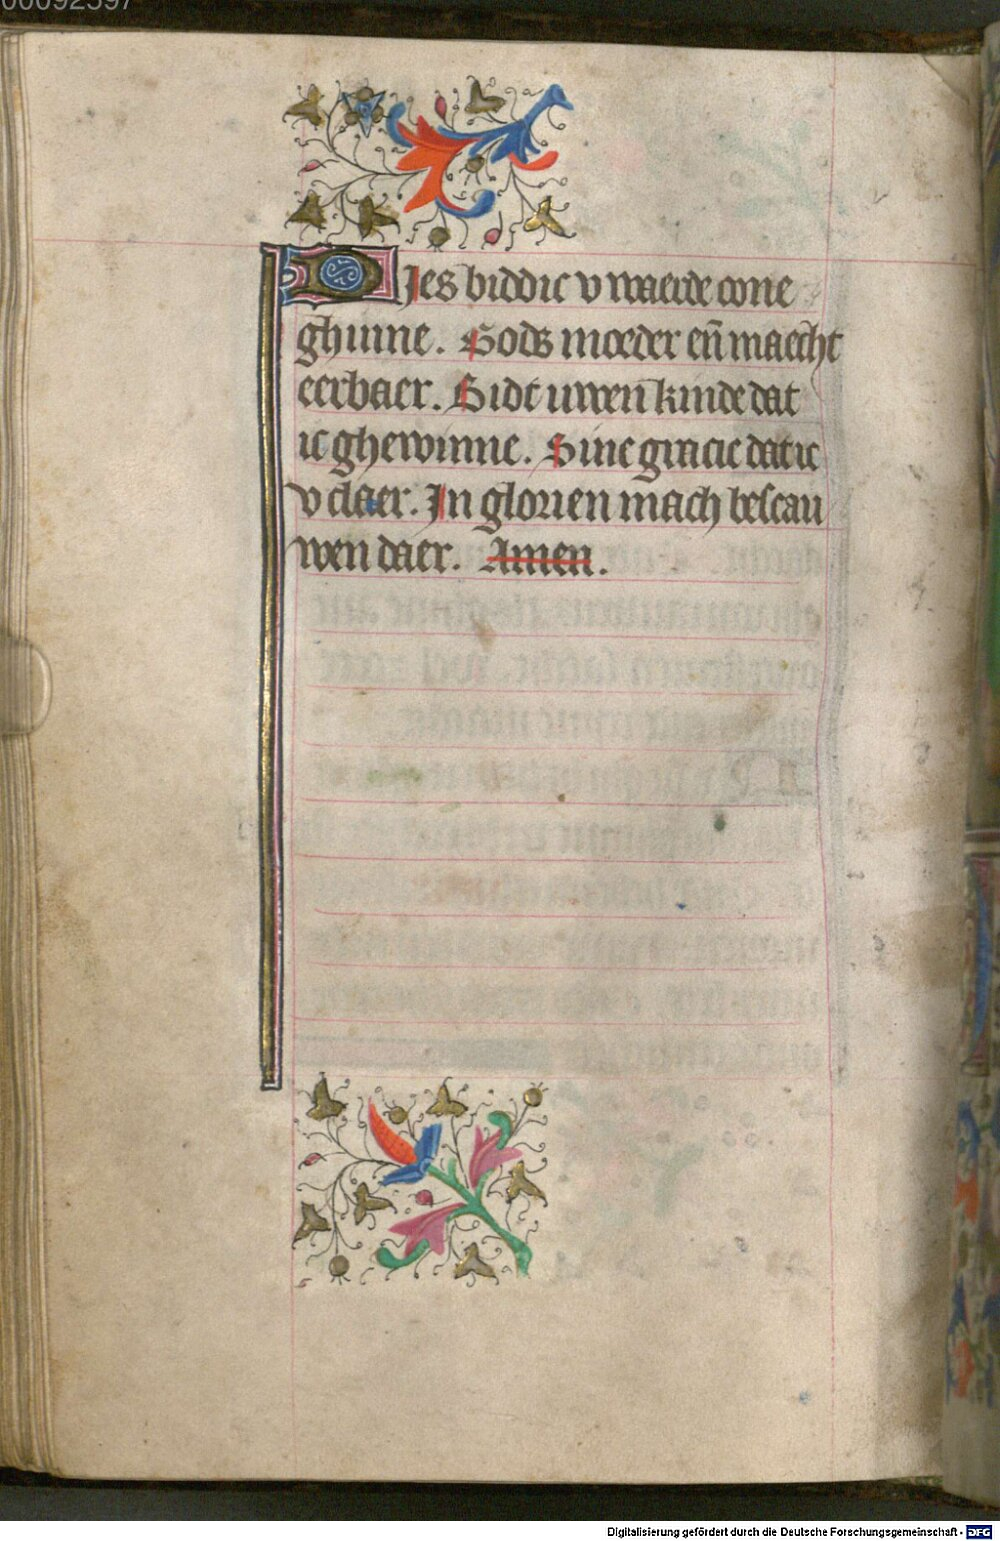 00092597
Dies biddic v waerde cone
ghinne. Gods moeder en̄ maecht
eerbaer. Bidt uwen kinde dat
ic ghewinne. Sine gracie dat ic
v claer. In glorien mach bescau
wen daer. Amen.
Digitalisierung gefördert durch die Deutsche Forschungsgemeinschaft - DFG